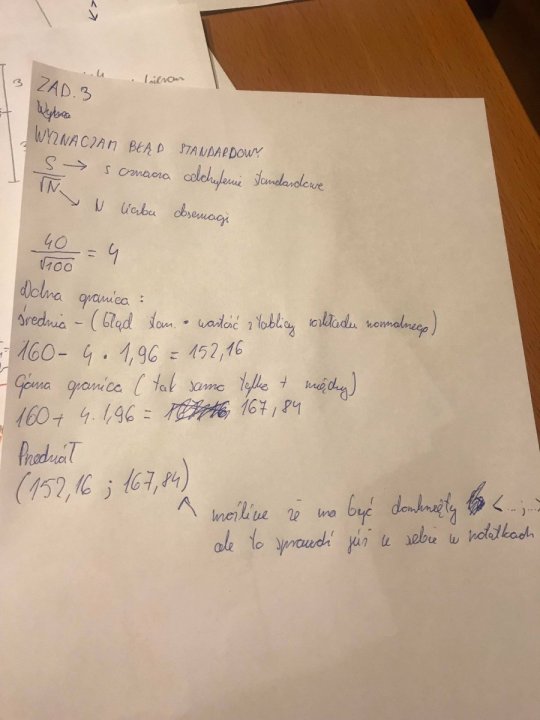 3
ZAD. 3
WYZNACZAM BŁĄD STANDARDOWY
S → s oznacza odchylenie standardowe
√N → N liczba obserwacji
40
√100 = 4
Dolna granica :
średnia - (błąd stan. • wartość z tablicy rozkładu normalnego)
160 - 4 • 1,96 = 152,16
Górna granica (tak samo tylko + między)
160 + 4 • 1,96 = 167,84
Przedział
(152,16 ; 167,84)
możliwe że ma być domknięty <...;...>
ale to sprawdź już u siebie w notatkach